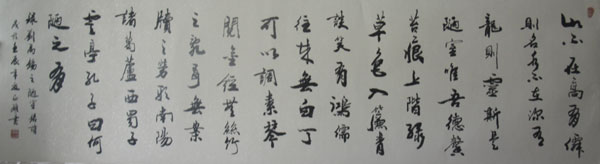 山不在高有僊
則名水不在深有
龍則靈斯是
陋室唯吾德馨
苔痕上階緑
草色入簾青
談笑有鴻儒
往來無白丁
可以調素琴
閱金經無絲竹
之亂耳無案
牘之勞形南陽
諸葛廬西蜀子
雲亭孔子曰何
陋之有
録劉禹錫之陋室銘
年 書